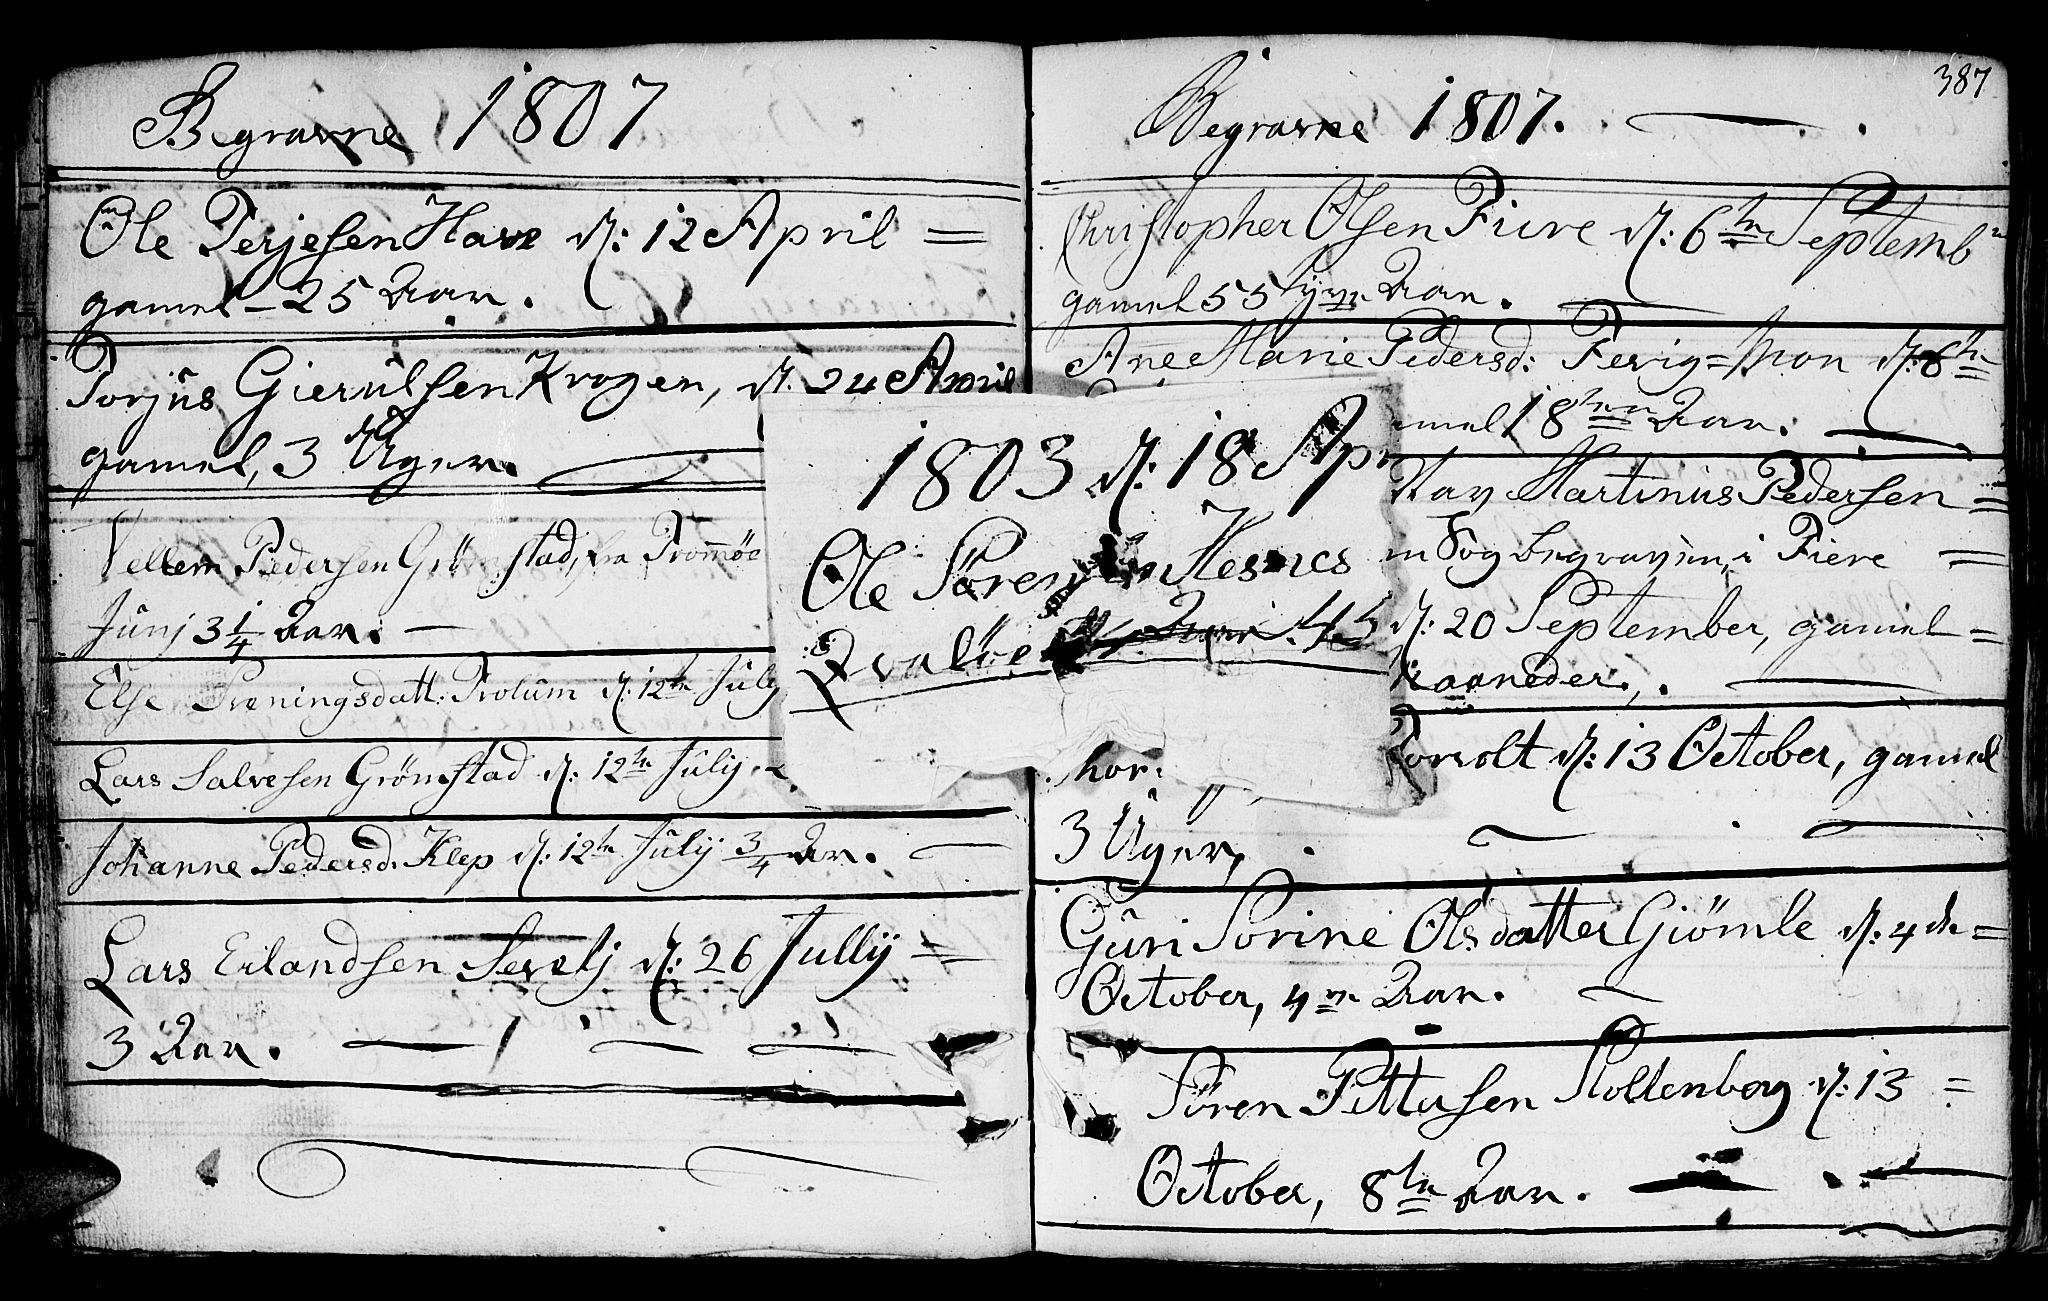 Begravne 1807
Ole Terjesen Have d: 12 April =
gamel - 25 Aar.
Torjus Gierulsen Krogen, d. 24 April
gamel, 3 Uger.
Vellem Pedersen Grömstad, fra Tromöe
Junj 3 1/4 Aar. —
Else Trøningsdatt: Trolum d: 12te July
Lars Salvesen Grömstad d: 12te July
Johanne Pedersd. Klep d: 12te July 3/4 Ar. —
Lars Erlandsen d: 26 Jullÿ =
3 Aar. —
387
Begravne 1807. —
Christopher Olsen Fiere d: 6te Septemb
gamel 55 Aar. —
Ane Marie Pedersd: Ferig=Mon d: 6te =
mel 18ten Aar. —
Martinus Pedersen =
m Sog begraven, i Fiere =
d: 20 September, gamel =
Maaneder. —
Thor. Torvolt d: 13 October, gamel
3 Uger, —
Guri Sorine Olsdatter Giömle d: 4de =
October, 4re Aar. —
Sören Pettersen Stoltenberg d: 13 =
October, 8te Aar. —
1803 d: 18 Ap
Ole Sören Hesnes